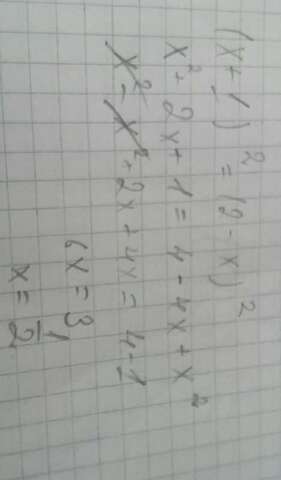 (x+1)² = (2-x)²
x²+2x+1=4-4x+x²
x²-x²+2x+4x=4-1
6x=3
x=1/2